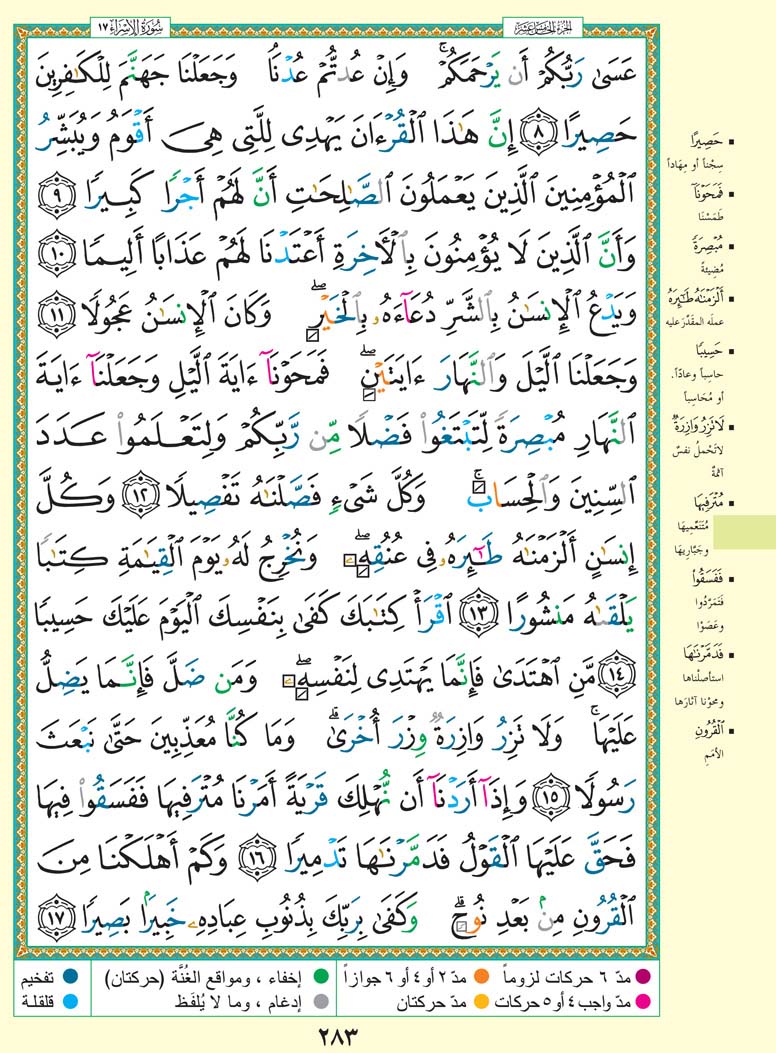 سُورَةُ الإِسْرَاء ١٧
الجُزْءُ الخَامِسَ عَشَرَ
عَسَىٰ رَبُّكُمْ أَن يَرْحَمَكُمْ ۚ وَإِنْ عُدتُّمْ عُدْنَا ۘ وَجَعَلْنَا جَهَنَّمَ لِلْكَٰفِرِينَ
حَصِيرًا ٨ إِنَّ هَٰذَا ٱلْقُرْءَانَ يَهْدِى لِلَّتِى هِىَ أَقْوَمُ وَيُبَشِّرُ
ٱلْمُؤْمِنِينَ ٱلَّذِينَ يَعْمَلُونَ ٱلصَّٰلِحَٰتِ أَنَّ لَهُمْ أَجْرًا كَبِيرًا ٩
وَأَنَّ ٱلَّذِينَ لَا يُؤْمِنُونَ بِٱلْأَخِرَةِ أَعْتَدْنَا لَهُمْ عَذَابًا أَلِيمًا ١٠
وَيَدْعُ ٱلْإِنسَٰنُ بِٱلشَّرِّ دُعَآءَهُۥ بِٱلْخَيْرِ ۖ وَكَانَ ٱلْإِنسَٰنُ عَجُولًا ١١
وَجَعَلْنَا ٱلَّيْلَ وَٱلنَّهَارَ ءَايَتَيْنِ ۖ فَمَحَوْنَآ ءَايَةَ ٱلَّيْلِ وَجَعَلْنَآ ءَايَةَ
ٱلنَّهَارِ مُبْصِرَةً لِّتَبْتَغُوا۟ فَضْلًا مِّن رَّبِّكُمْ وَلِتَعْلَمُوا۟ عَدَدَ
ٱلسِّنِينَ وَٱلْحِسَابَ ۚ وَكُلَّ شَىْءٍ فَصَّلْنَٰهُ تَفْصِيلًا ١٢ وَكُلَّ
إِنسَٰنٍ أَلْزَمْنَٰهُ طَٰٓئِرَهُۥ فِى عُنُقِهِۦ ۖ وَنُخْرِجُ لَهُۥ يَوْمَ ٱلْقِيَٰمَةِ كِتَٰبًا
يَلْقَىٰهُ مَنشُورًا ١٣ ٱقْرَأْ كِتَٰبَكَ كَفَىٰ بِنَفْسِكَ ٱلْيَوْمَ عَلَيْكَ حَسِيبًا
١٤ مَّنِ ٱهْتَدَىٰ فَإِنَّمَا يَهْتَدِى لِنَفْسِهِۦ ۖ وَمَن ضَلَّ فَإِنَّمَا يَضِلُّ
عَلَيْهَا ۚ وَلَا تَزِرُ وَازِرَةٌ وِزْرَ أُخْرَىٰ ۗ وَمَا كُنَّا مُعَذِّبِينَ حَتَّىٰ نَبْعَثَ
رَسُولًا ١٥ وَإِذَآ أَرَدْنَآ أَن نُّهْلِكَ قَرْيَةً أَمَرْنَا مُتْرَفِيهَا فَفَسَقُوا۟ فِيهَا
فَحَقَّ عَلَيْهَا ٱلْقَوْلُ فَدَمَّرْنَٰهَا تَدْمِيرًا ١٦ وَكَمْ أَهْلَكْنَا مِنَ
ٱلْقُرُونِ مِنۢ بَعْدِ نُوحٍ ۗ وَكَفَىٰ بِرَبِّكَ بِذُنُوبِ عِبَادِهِۦ خَبِيرًۢا بَصِيرًا ١٧
▪ حَصِيرًا
سِجْناً أو مِهَاداً
▪ فَمَحَوْنَآ
طَمَسْنَا
▪ مُبْصِرَةً
مُضِيئةً
▪ أَلْزَمْنَٰهُ طَٰٓئِرَهُۥ
عملَه المقدَّرَ عليه
▪ حَسِيبًا
حاسِباً وعادّاً.
أو مُحَاسِباً
▪ لَا تَزِرُ وَازِرَةٌ
لاتَحْمِلُ نفسٌ
آثمةٌ
▪ مُتْرَفِيهَا
مُتَنَعِّمِيهَا
وجَبَّارِيهَا
▪ فَفَسَقُوا۟
فَتَمَرَّدُوا
وعَصَوْا
▪ فَدَمَّرْنَٰهَا
استأصلْناها
ومحَوْنا آثارَها
▪ ٱلْقُرُونِ
الأمَمِ
مدّ ٦ حركات لزوماً
مدّ ٢ أو ٤ أو ٦ جوازاً
إخفاء ، ومواقع الغُنَّة (حركتان)
تفخيم
مدّ واجب ٤ أو ٥ حركات
مدّ حركتان
إدغام ، وما لا يُلفَظ
قلقلة
٢٨٣